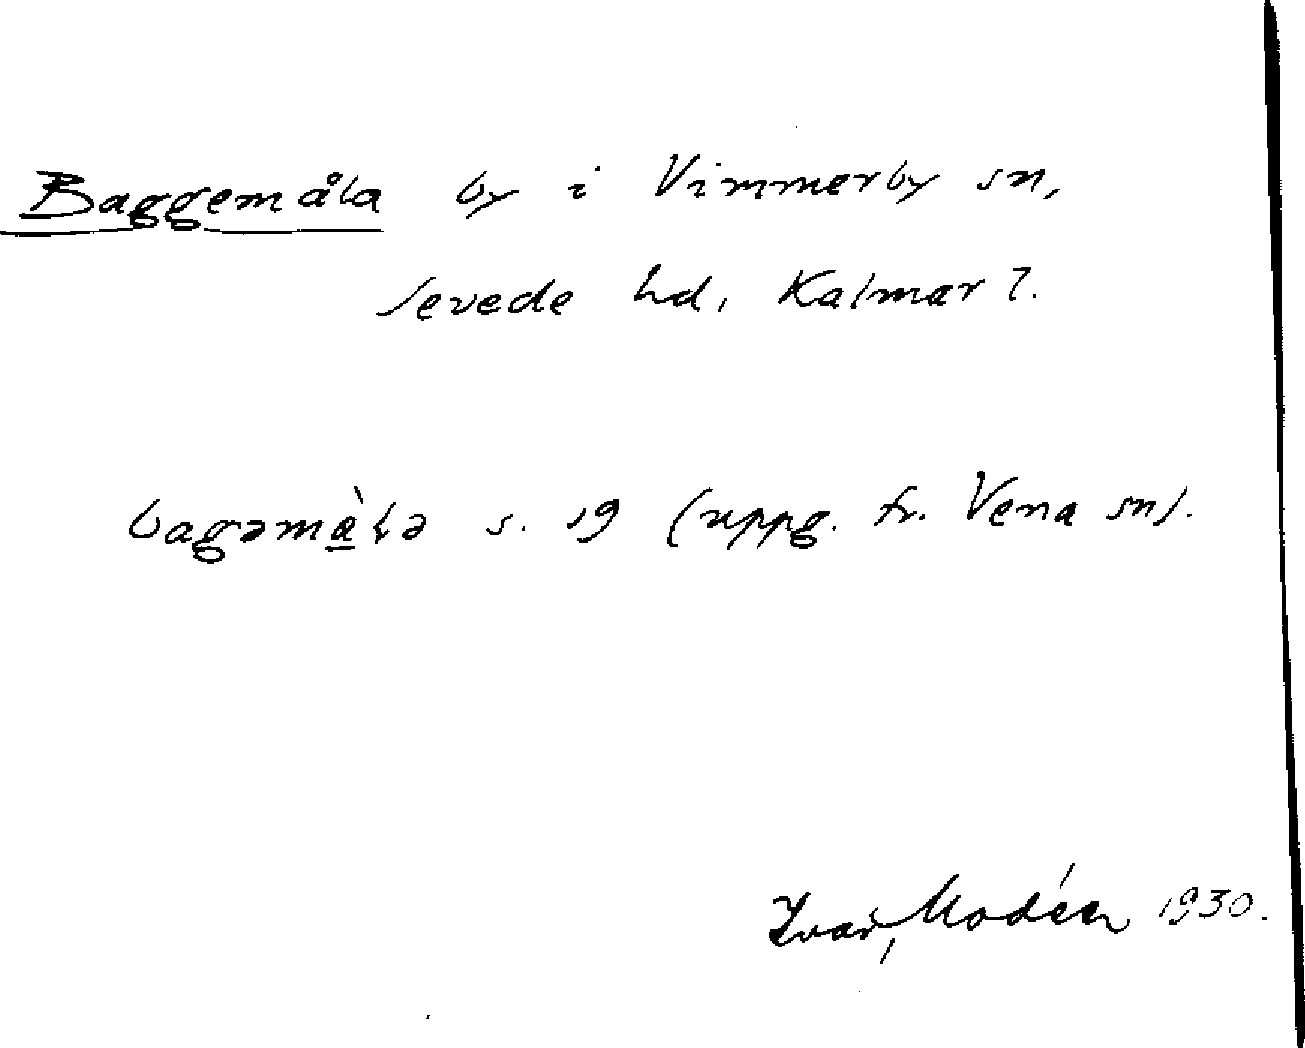 Baggemåla by i Vimmerby sn,
Sevede hd, Kalmar l.
bagəmа̱̀ɫa s. 19 (uppg. fr. Vena sn).
Ivar Modéer 1930.